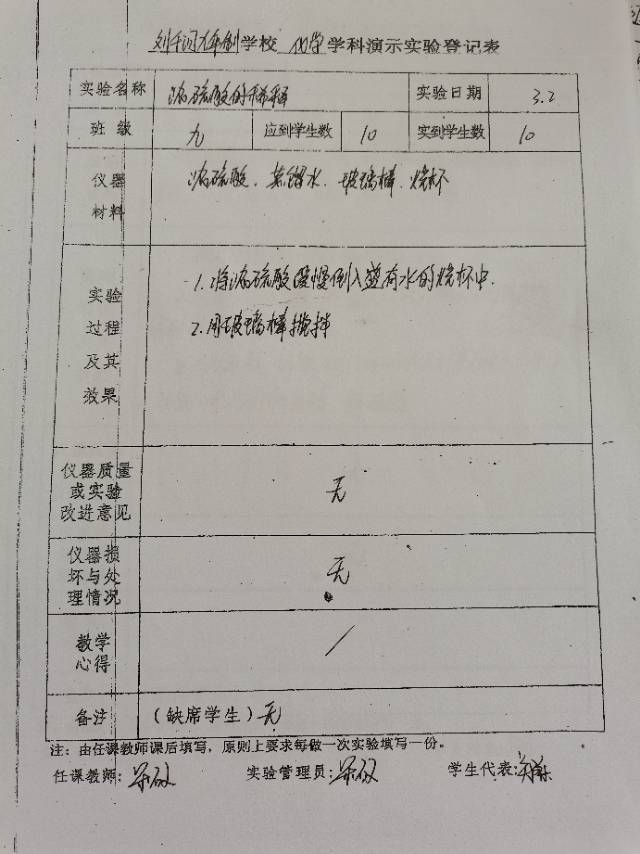 九年制学校 化学 学科演示实验登记表
实验名称 浓硫酸的稀释 实验日期 3.2
班级 九 应到学生数 10 实到学生数 10
仪器材料 浓硫酸、蒸馏水、玻璃棒、烧杯
实验过程及其效果
1.将浓硫酸慢慢倒入盛有水的烧杯中.
2.用玻璃棒搅拌
仪器质量或实验改进意见 无
仪器损坏与处理情况 无
教学心得 /
备注 (缺席学生)无
注:由任课教师课后填写,原则上要求每做一次实验填写一份。
任课教师: 实验管理员: 学生代表: